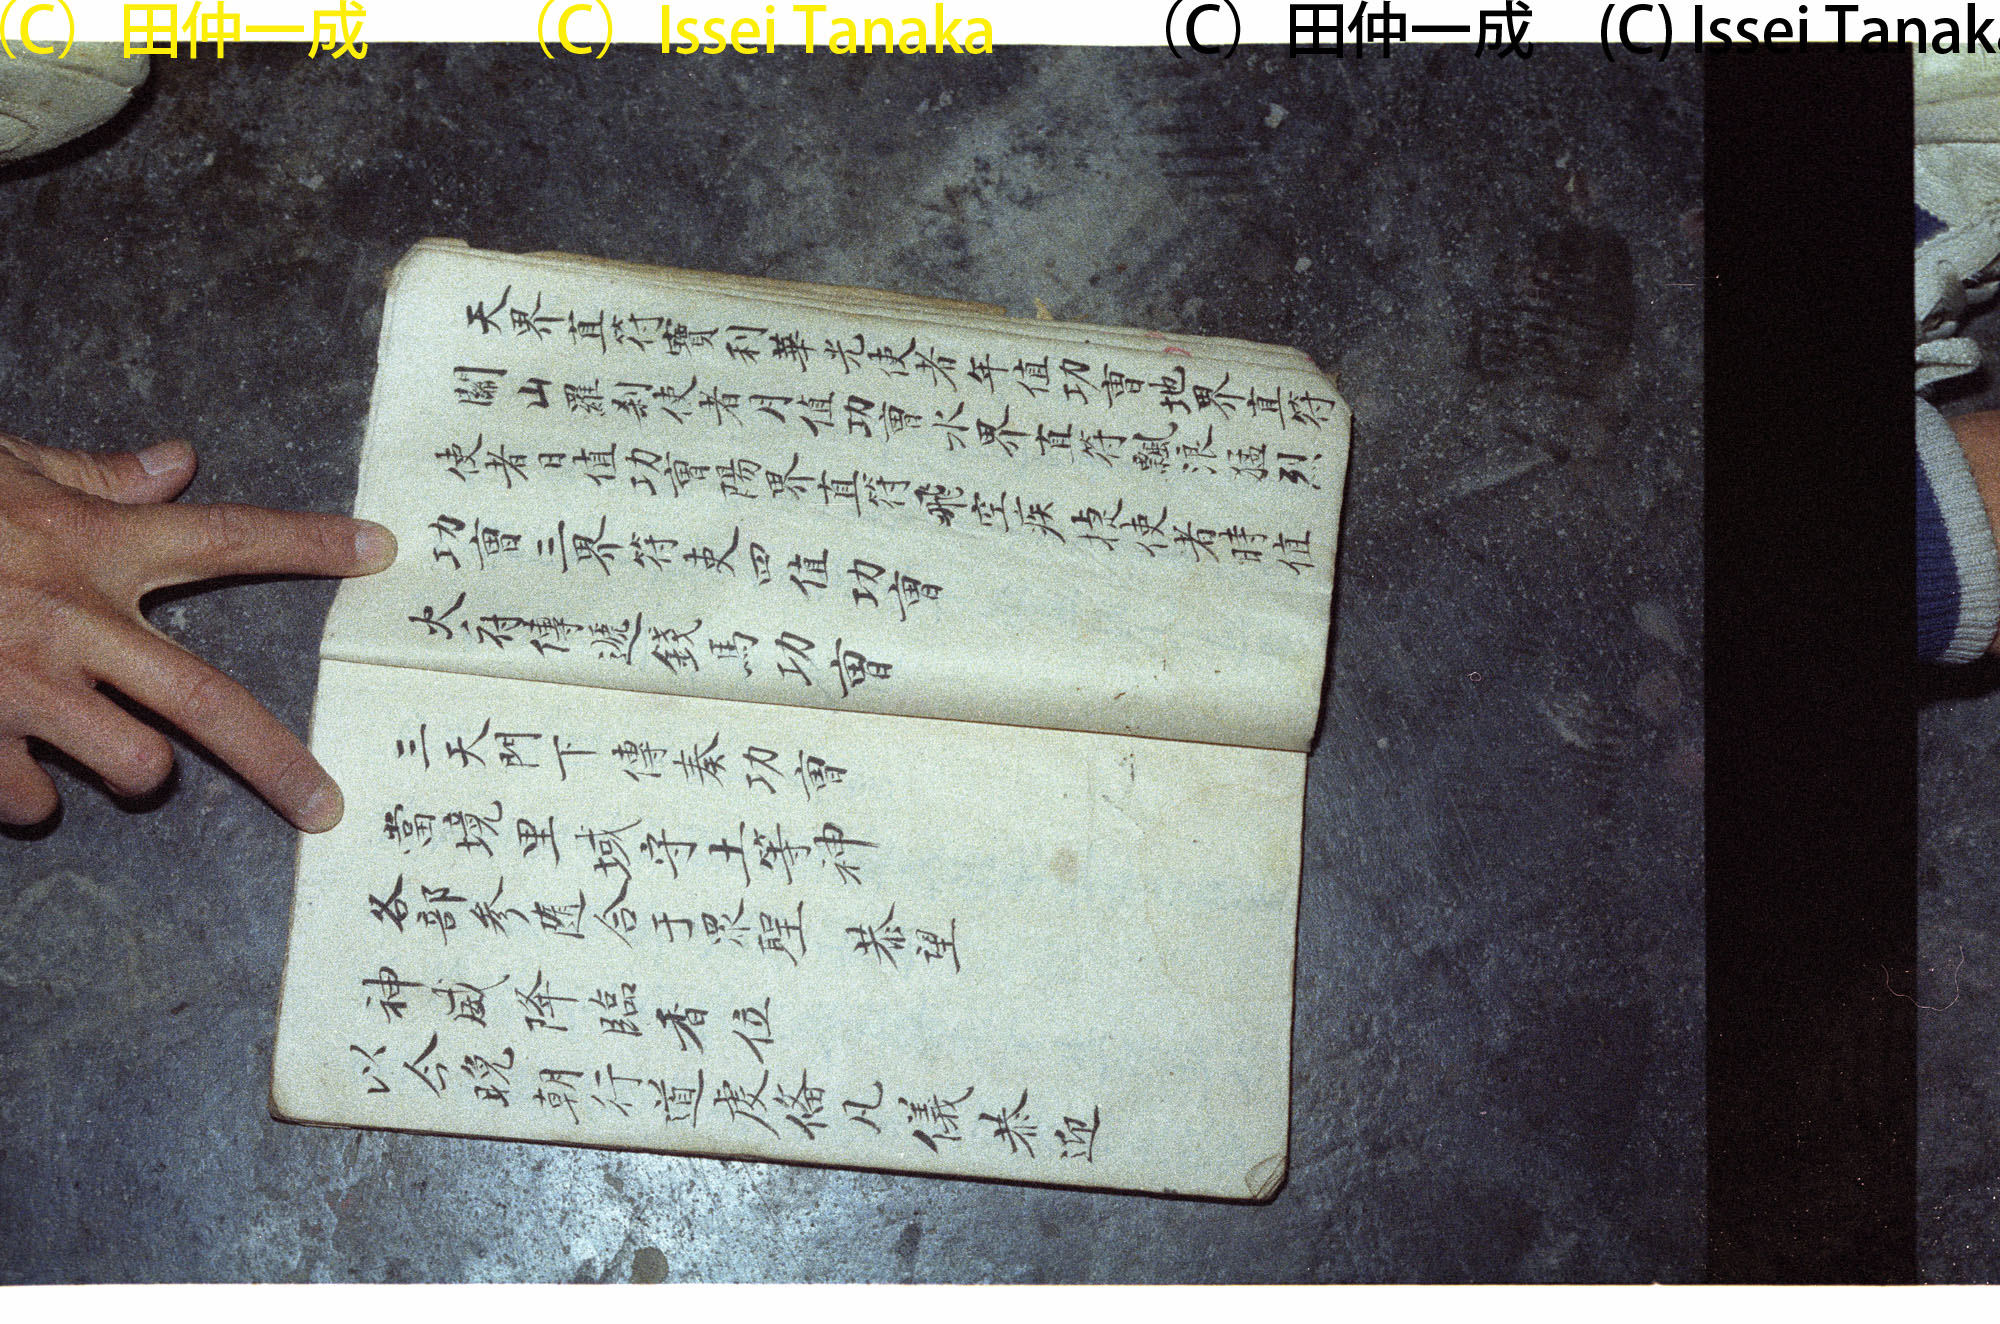 (C) 田仲一成 (C) Issei Tanaka (C) 田仲一成 (C) Issei Tanaka
天界直符寶利華光使者年值功曹地界直符
關山羅剎使者月值功曹水界直符飄浪猛烈
使者日值功曹陽界直符飛空疾捷使者時值
功曹三界符吏四值功曹
火符傳遞錢馬功曹
三天門下傳奏功曹
當境里域守土等神
各部參隨合于眾聖 恭望
神威降臨香位
以今晚朝行道虔俻凡儀恭迎